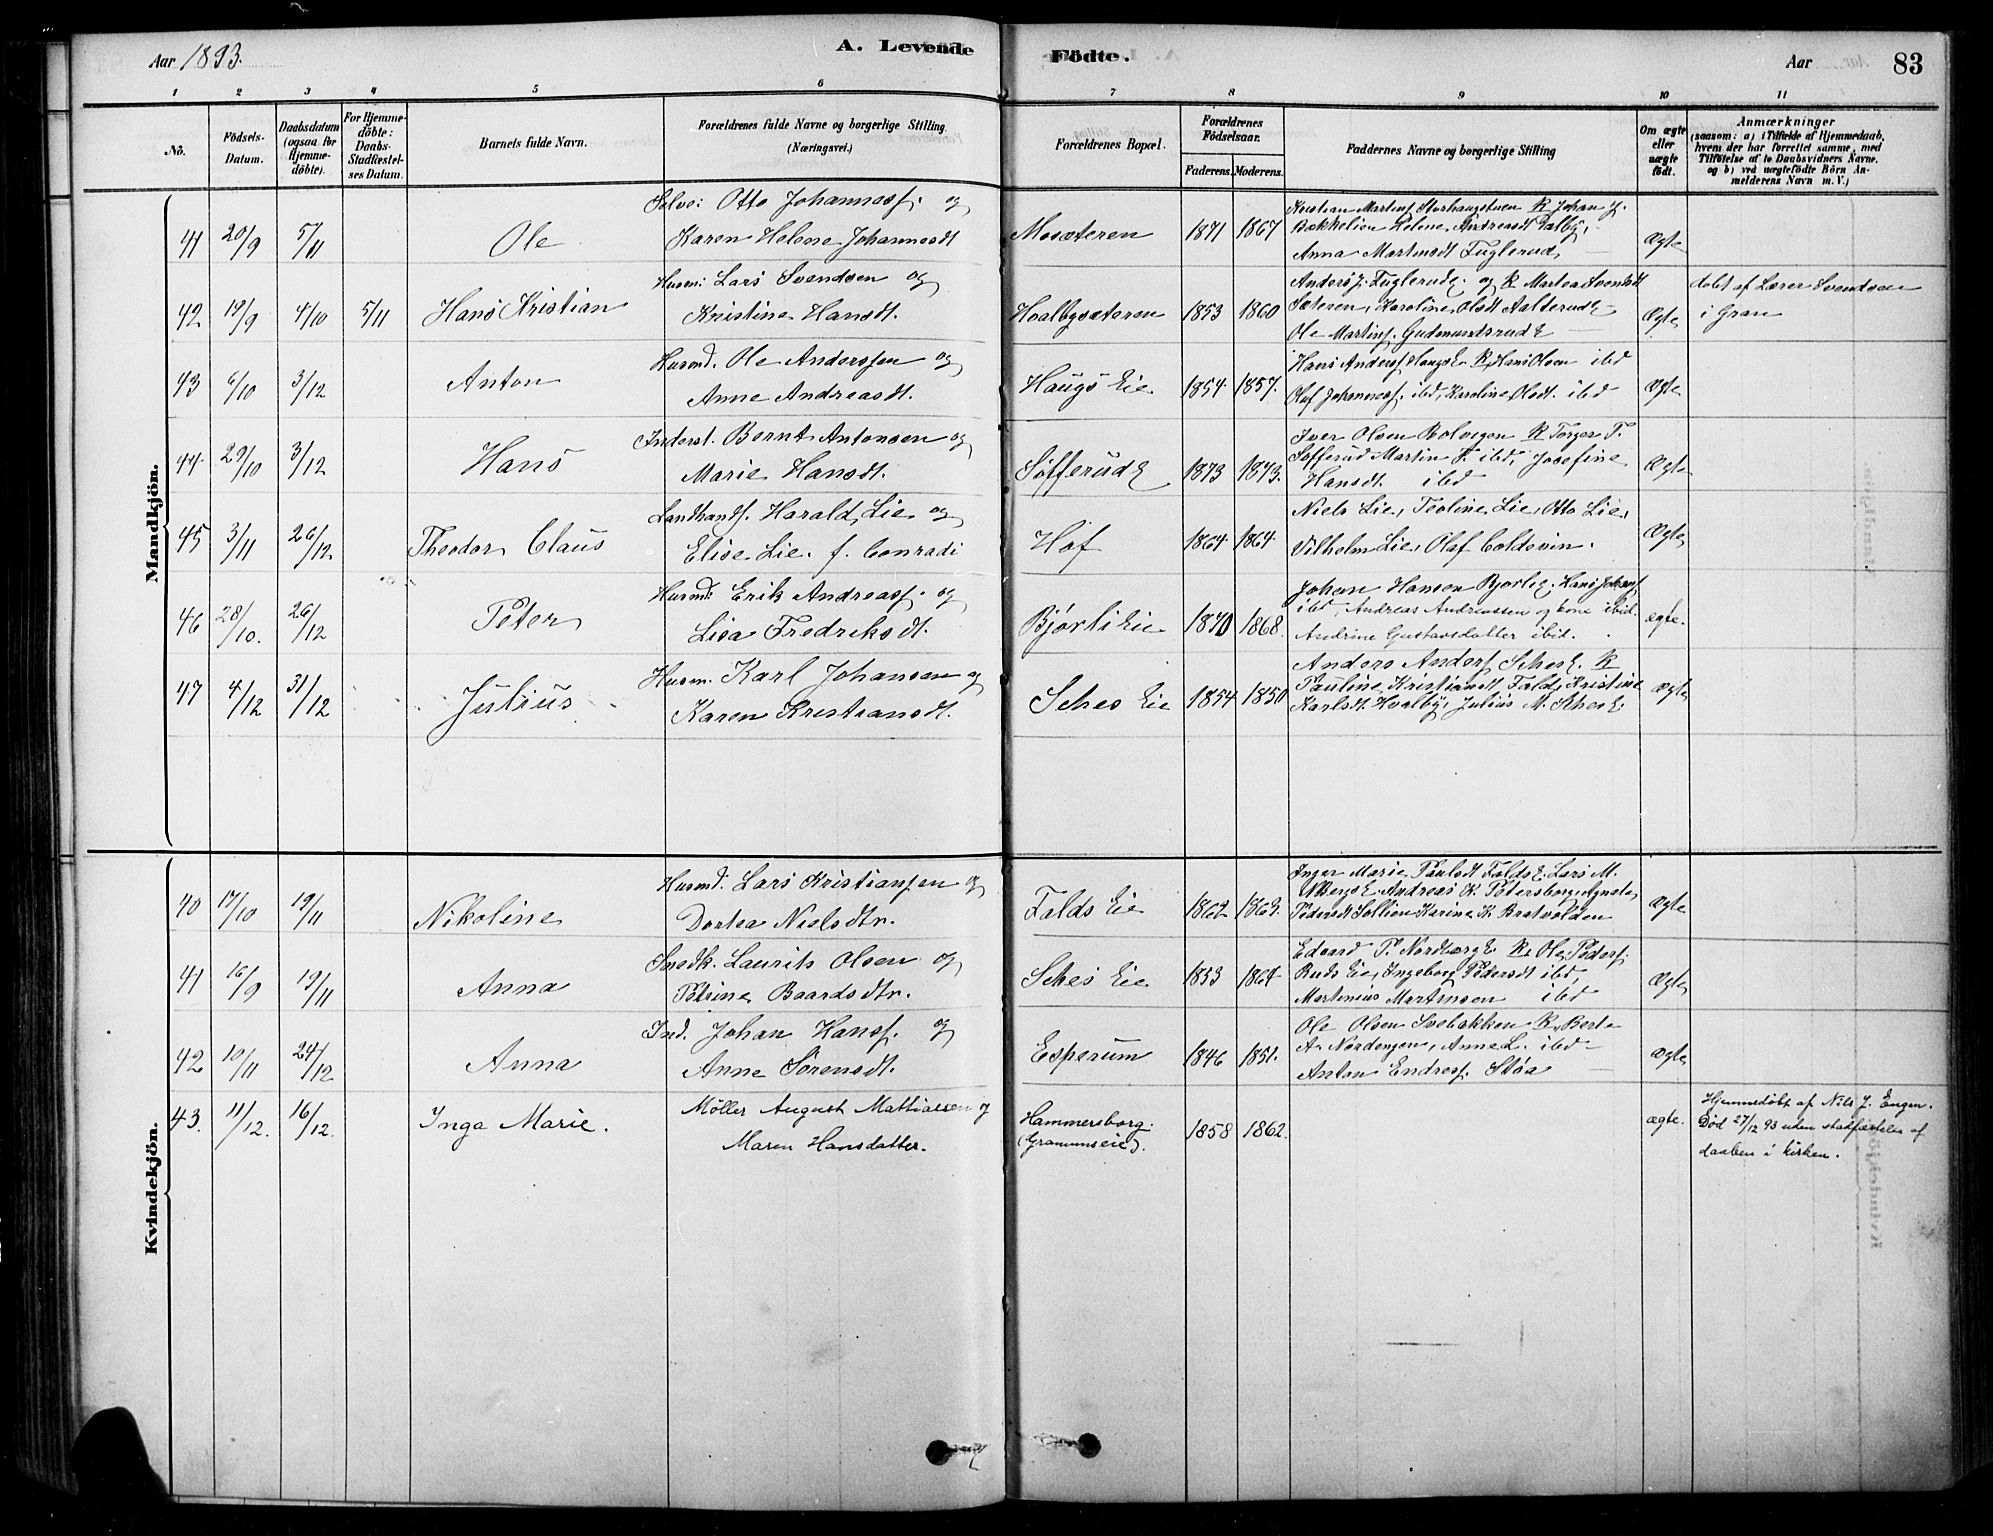 Aar 1893.
A. Levende
Födte.
Aar
83
1 2 3 4 5 6 7 8 9 10 11
No.
Födsels-Datum.
Daabsdatum (ogsaa for Hjemme-döbte).
For Hjemme-döbte: Daabs-Stadfestel-ses Datum.
Barnets fulde Navn.
Forældrenes fulde Navne og borgerlige Stilling.
(Næringsvei.)
Forældrenes Bopæl.
Forældrenes Födselsaar.
Faderens. Moderens.
Faddernes Navne og borgerlige Stilling
Om ægte eller uægte födt.
Anmærkninger
(saasom: a) i Tilfælde af Hjemmedaab,
hvem der har forrettet samme, med
Tilföielse af to Daabsvidners Navne.
og b) ved uægtefödte Börn An-
melderens Navn m. V.)
Mandkjön.
41 20/9 5/11 Ole
Selve: Otto Johannesf. og
Karen Helene Johannesdt
Mosæteren 1871 1867
Kristian Martinsf. R Johan J.
Bakkelien Helene Andreasdt Dalby,
Anna Martinsdt Fuglerud
Ægte
42 19/9 4/10 5/11 Hans Kristian
Husm: Lars Svendsen og
Kristine Hansdt.
Hvalbysæteren 1853 1860
Anders J. Fuglerude. og R Martea Svendsdt
Sæteren, Karoline Olsdt
Ole Martinsf. Gudmundsrud E
Ægte
döbt af Lærer Svendsen
i Gran
43 6/10 3/12 Anton
Husmd. Ole Anderssen og
Anne Andreasdt.
Haugs Eie 1854 1857.
Hans Andersf. Haugs E. R Hans Olsen ibd
Olaf Johannesf. ibd, Karoline Olsdt. ibd
Ægte
44 29/10 3/12 Hans
Inderst. Bernt Antonsen og
Marie Hansdt.
Söfferud E 1873 1873.
Iver Olsen Rolvigen R Torger T.
Söfferud Martin T. ibd, Josefine
Hansdt. ibd
Ægte
45 3/11 26/12 Theodor Claus
Landhandl. Harald Lie og
Elise Lie. f. Conradi
Hof 1864 1864
Niels Lie, Teoline Lie, Otto Lie,
Vilhelm Lie, Olaf Coldevin.
Ægte
46 28/10. 26/12 Peter
Husmd: Erik Andreasf. og
Lisa Fredriksdt.
Bjørli Eie 1870 1868.
Johan Hansen Bjørli E. Hans Johansf
ibd, Andreas Andreassen og kone ibid.
Andrine Gustavsdatter ibid.
ægte.
47 4/12 31/12 Julius
Husm. Karl Johansen og
Karen Kristiansdt.
Sches Eie 1854 1850
Anders Andersf Sches E. R
Pauline Kristiansdt Fald, Kristine
Karlsdt. Hvalby, Julius M. Sches E.
Ægte
Kvindekjön.
40 17/10 19/11 Nikoline
Husmd. Lars Kristiansen og
Dortea Nielsdtr.
Falds Eie 1862 1863.
Inger Marie Paulsdt Falds E. Lars M.
Andreas K. Petersborg, Agnete
Pedersdt Sollien Karine K. Bratvolden
Ægte
41 16/9 19/11 Anna
Snedk. Laurits Olsen og
Petrine Baardsdtr.
Sches Eie 1853 1864
Edvard P. Nordberg E. R. Ole Pedersf.
Ruds Eie, Ingeborg Pedersdt ibd,
Martinius Martinsen ibd
Ægte
42 10/11 24/12 Anna
Ind. Johan Hansf. og
Anne Sörensdt.
Esperum 1846 1851.
Ole Olsen Svebakken R. Berte
A. Nordengen, Anne L. ibd
Anton Endresf. Stöa
Ægte
43. 11/12. 16/12. Inga Marie.
Møller August Mattiassen og
Maren Hansdatter.
Hammersborg.
(Gramunseie). 1858 1862.
ægte.
Hjemmedöbt af Nils J. Engen.
Död 27/12 93 uden stadfæstelse af
daaben i kirken.